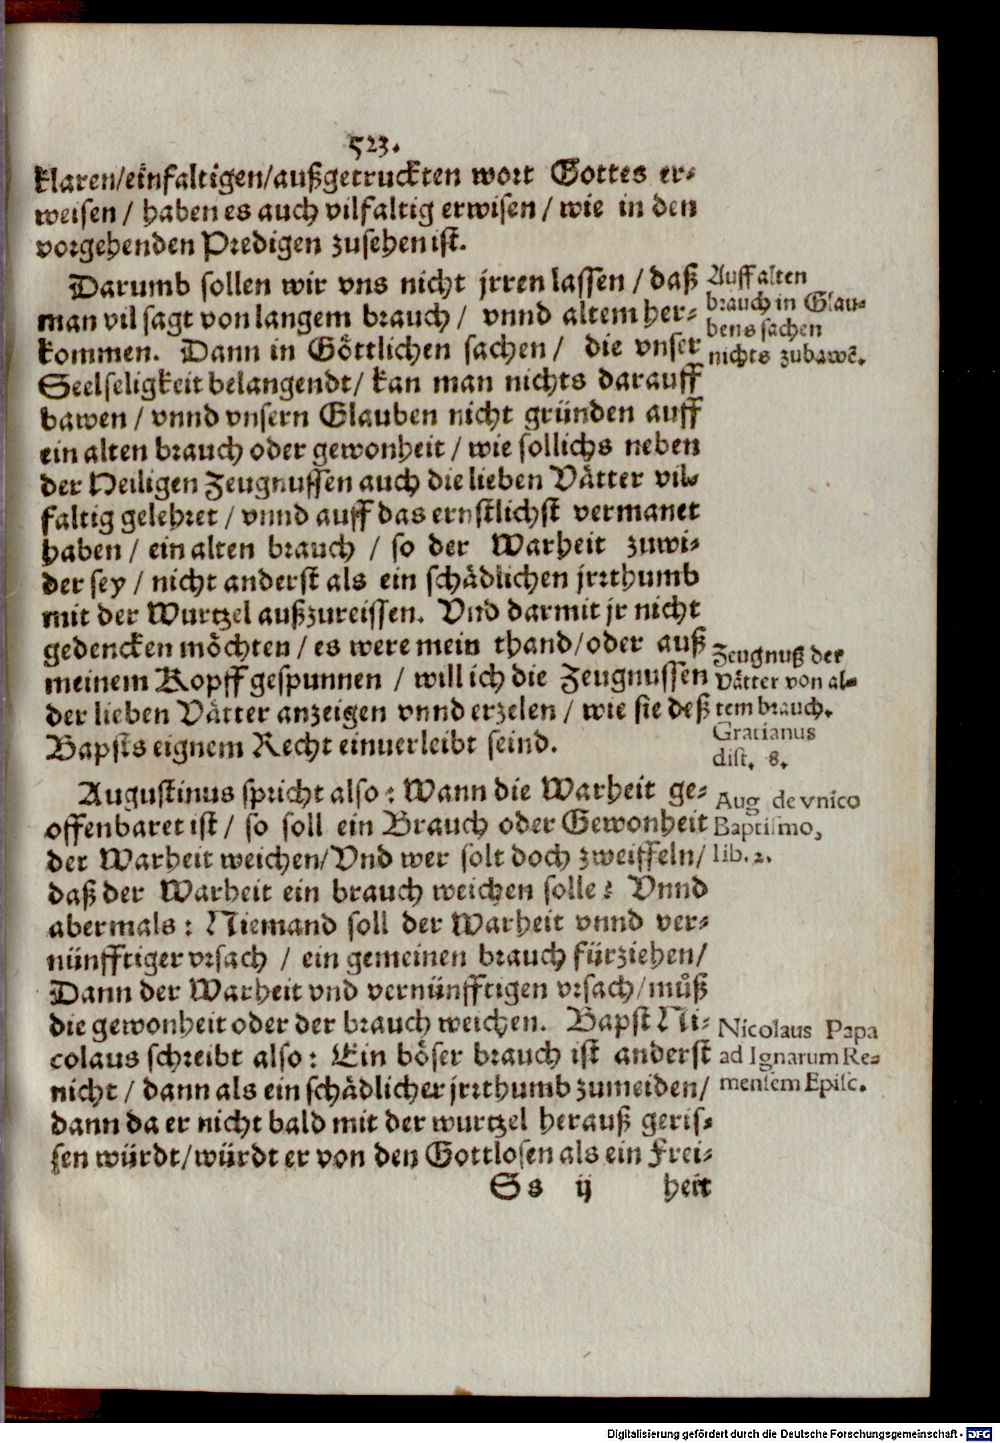 523.
klaren/einfaltigen/außgetruckten wort Gottes er-
weisen / haben es auch vilfaltig erwisen / wie in den
vorgehenden Predigen zusehen ist.
Darumb sollen wir vns nicht jrren lassen / daß
man vil sagt von langem brauch / vnnd altem her-
kommen. Dann in Göttlichen sachen / die vnser
Seelseligkeit belangendt / kan man nichts darauff
bawen / vnnd vnsern Glauben nicht gründen auff
ein alten brauch oder gewonheit / wie sollichs neben
der Heiligen Zeugnussen auch die lieben Vätter vil-
faltig gelehret / vnnd auff das ernstlichst vermanet
haben / ein alten brauch / so der Warheit zuwi-
der sey / nicht anderst als ein schädlichen jrrthumb
mit der Wurtzel außzureissen. Vnd darmit jr nicht
gedencken möchten / es were mein thand/oder auß
meinem Kopff gespunnen / will ich die Zeugnussen
der lieben Vätter anzeigen vnnd erzelen / wie sie deß
Bapsts eignem Recht einuerleibt seind.
Augustinus spricht also: Wann die Warheit ge-
offenbaret ist / so soll ein Brauch oder Gewonheit
der Warheit weichen/Vnd wer solt doch zweiffeln/
daß der Warheit ein brauch weichen solle? Vnnd
abermals: Niemand soll der Warheit vnnd ver-
nünfftiger vrsach / ein gemeinen brauch fürziehen/
Dann der Warheit vnd vernünfftigen vrsach/můß
die gewonheit oder der brauch weichen. Bapst Ni-
colaus schreibt also: Ein böser brauch ist anderst
nicht / dann als ein schädlicher jrrthumb zumeiden/
dann da er nicht bald mit der wurtzel herauß geris-
sen würdt/würdt er von den Gottlosen als ein Frei-
Ss ij heit
Auff alten
brauch in Glau-
bens sachen
nichts zubawẽ.
Zeugnuß der
Vätter von al-
tem brauch.
Gratianus
dist. 8.
Aug de vnico
Baptismo,
lib. 2.
Nicolaus Papa
ad Ignarum Re-
mensem Episc.
Digitalisierung gefördert durch die Deutsche Forschungsgemeinschaft - DFG